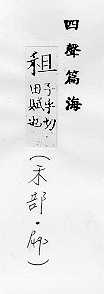 四聲篇海
租
子乎切
田賦也
(禾部·